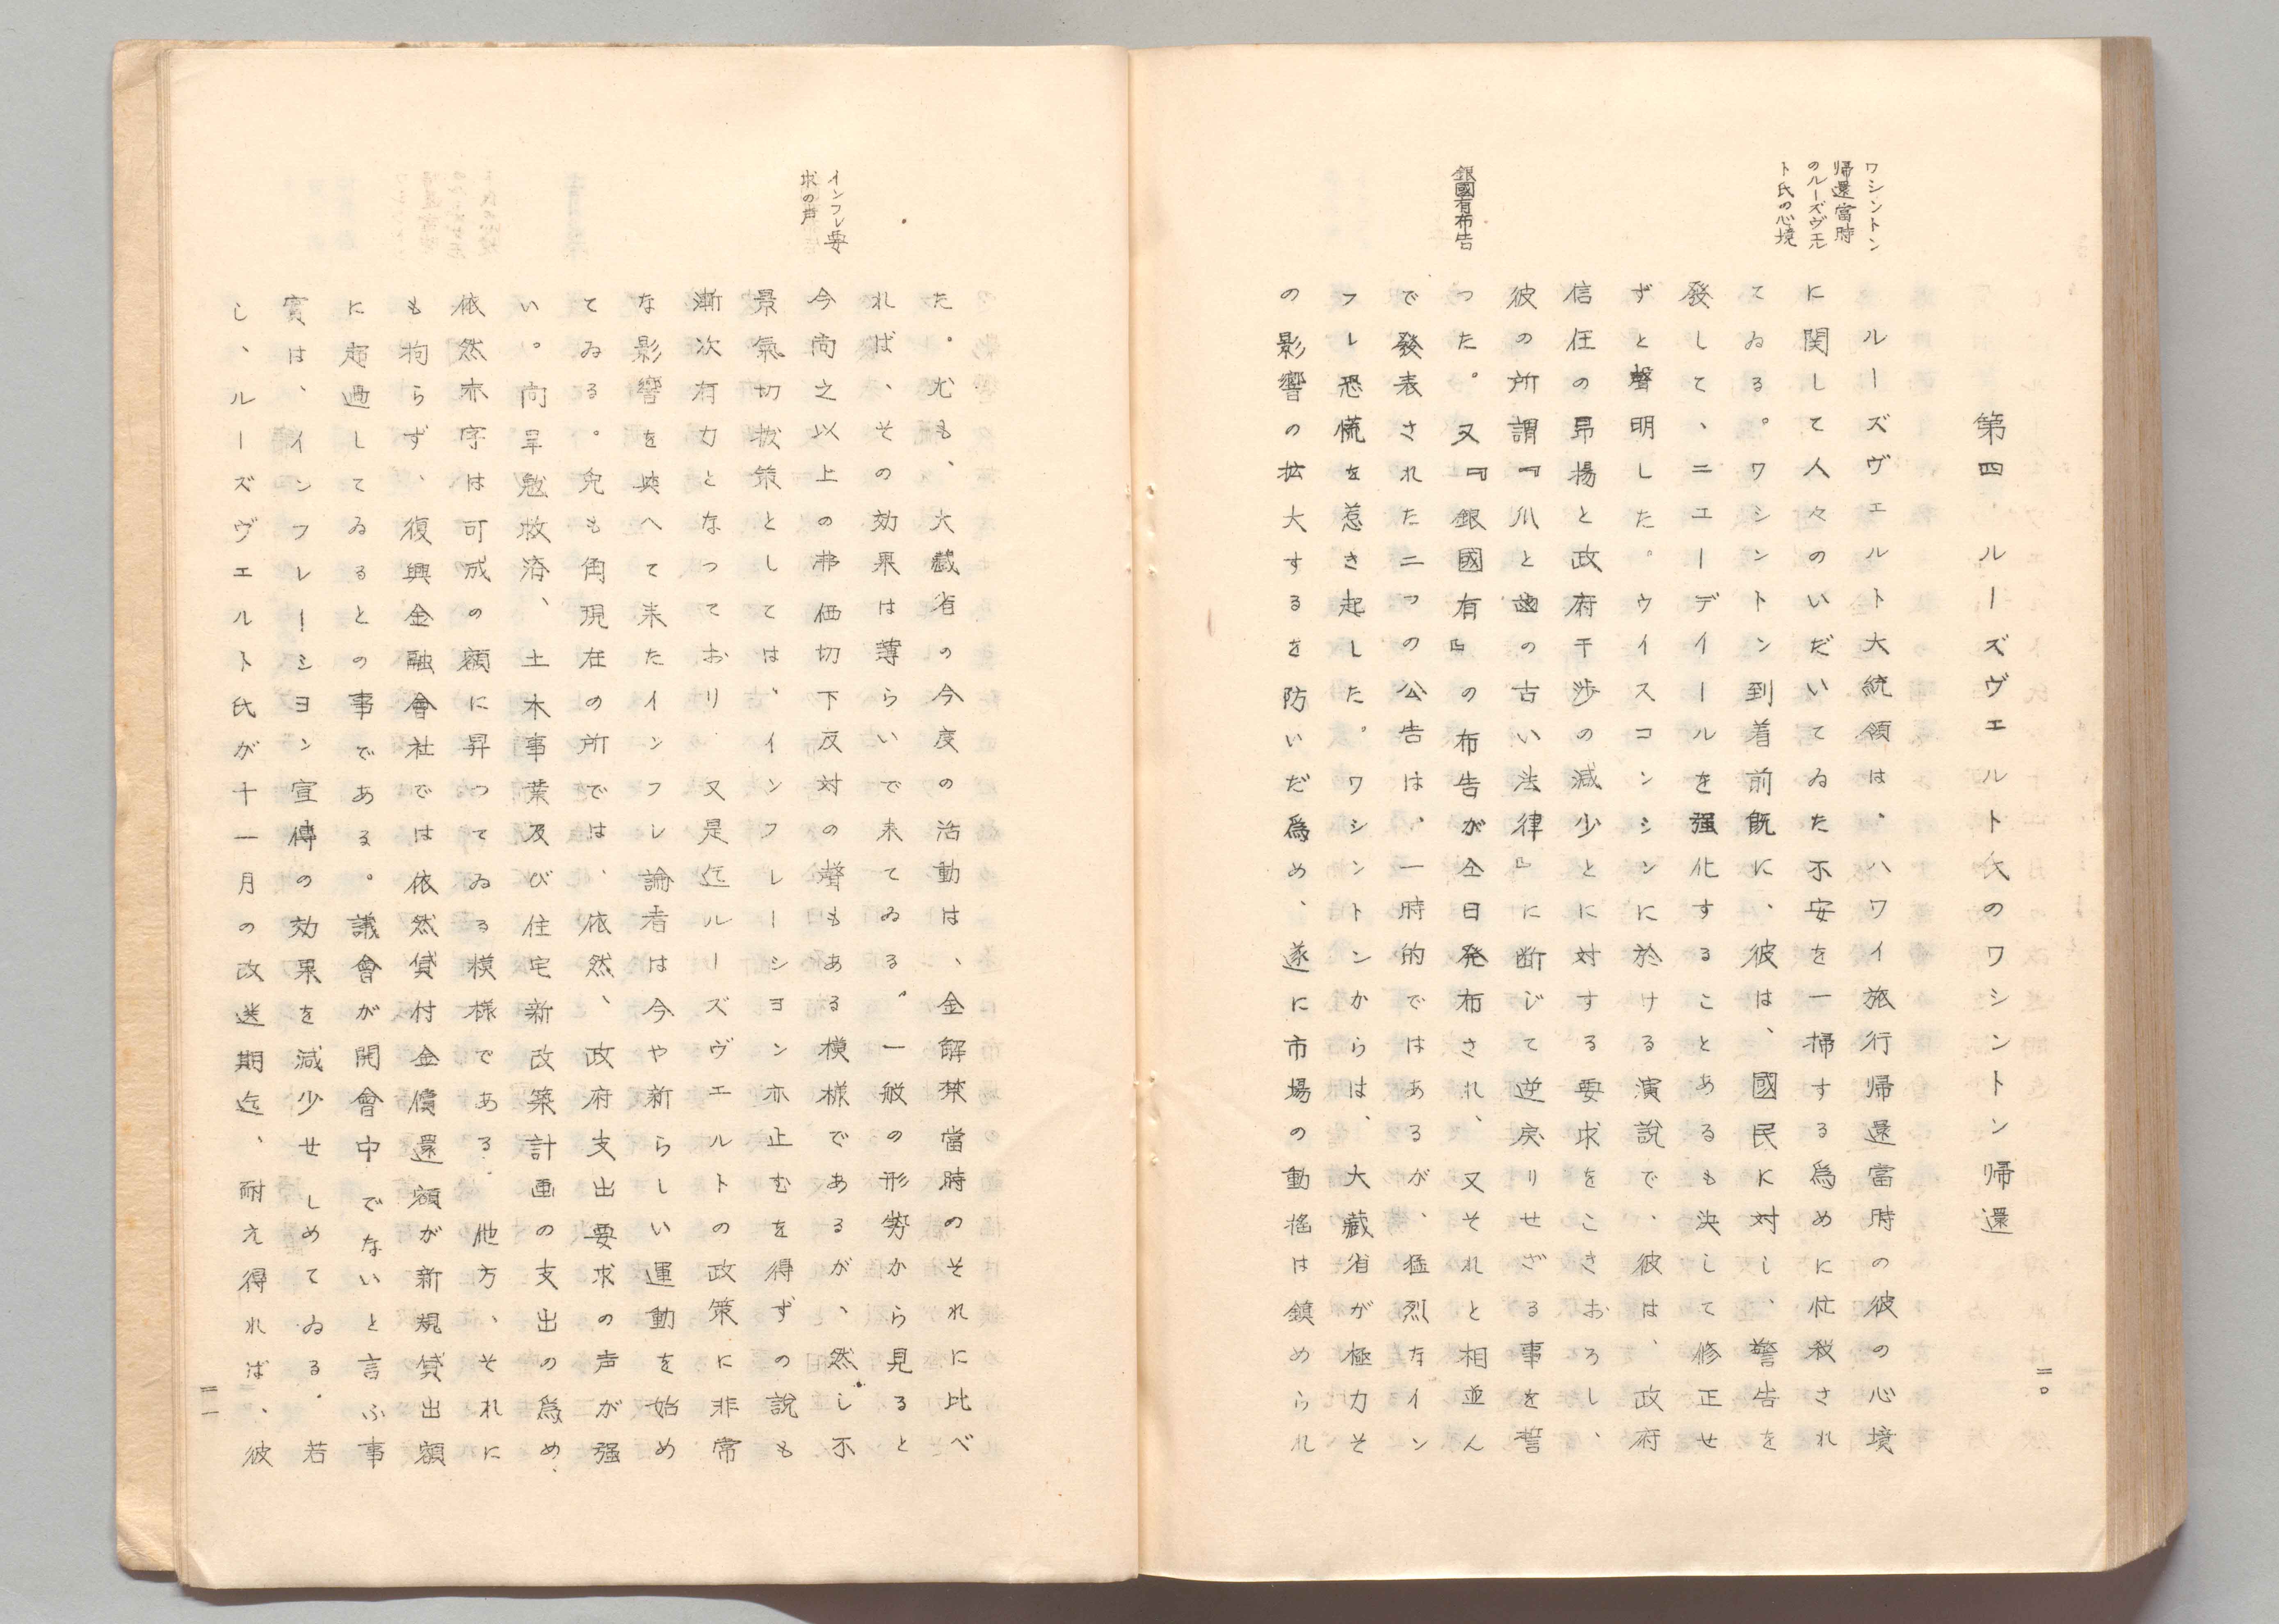 第四、ルーズヴェルト氏のワシントン帰還
ワシントン
帰還當時
のルーズヴェル
ト氏の心境
ルーズヴェルト大統領は、ハワイ旅行帰還當時の彼の心境
に関して人々のいだいてゐた不安を一掃する爲めに忙殺され
てゐる。ワシントン到着前既に、彼は、國民に対し、警告を
發して、ニューデイールを强化することあるも決して修正せ
ずと聲明した。ウイスコンシンに於ける演説で、彼は、政府
信任の昂揚と政府干渉の減少とに対する要求をこきおろし、
彼の所謂『爪と歯の古い法律』に断じて逆戻りせざる事を誓
銀國有布告
つた。又『銀國有』の布告が仝日発布され、又それと相並ん
で發表された二つの公告は、一時的ではあるが、猛烈なイン
フレ恐慌を惹き起した。ワシントンからは、大藏省が極力そ
の影響の拡大するを防いだ爲め、遂に市場の動搖は鎭められ
二〇
た。尤も、大藏省の今度の活動は、金解禁當時のそれに比べ
れば、その効果は薄らいで来てゐる。一般の形勢から見ると
インフレ要
求の声
今尚之以上の沸価切下反対の聲もある模様であるが、然し不
景氣切拔策としては、インフレーシヨン亦止むを得ずの説も
漸次有力となつており、又是迄ルーズヴエルトの政策に非常
な影響を與へて来たインフレ論者は今や新らしい運動を始め
てゐる。兎も角現在の所では、依然、政府支出要求の声が强
い。向旱魃救済、土木事業及び住宅新改築計画の支出の爲め、
依然赤字は可成の額に昇つてゐる模様である。他方、それに
も拘らず、復興金融會社では依然貸付金償還額が新規貸出額
に超過してゐるとの事である。議會が開會中でないと言ふ事
実は、インフレーシヨン宣傳の効果を減少せしめてゐる。若
し、ルーズヴエルト氏が十一月の改送期迄、耐え得れば、彼
二一